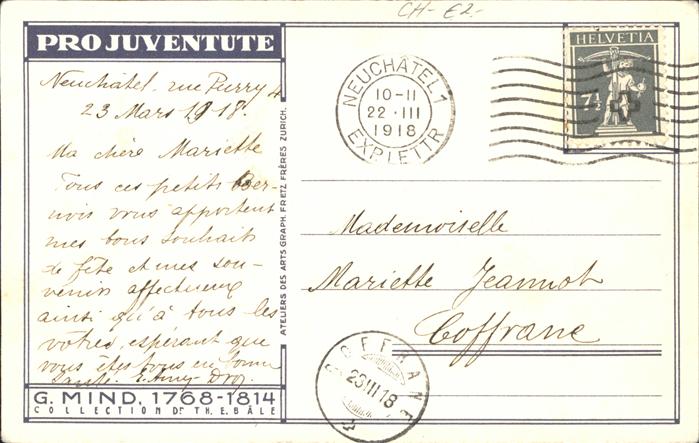 CH- E2.-
PRO JUVENTUTE
Neuchâtel, rue Purry 4
23 Mars 1918.
Ma chère Mariette
Tous ces petits Ber-
nois vous apportent
mes bons souhaits
de fête et mes sou-
venirs affectueux
ainsi qu'à tous les
vôtres, espérant que
vous êtes tous en bonne
santé. Droz.
G. MIND, 1768-1814
COLLECTION DE TH. E. BÂLE
ATELIERS DES ARTS GRAPH. FRETZ FRÈRES ZURICH.
NEUCHÂTEL 1
10-11
22.III
1918
EXP. LETTR
HELVETIA
7½
Mademoiselle
Mariette Jeannot
Coffrane
COFFRANE
23.III.18